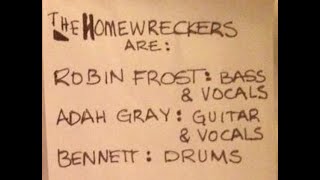 THE HOMEWRECKERS
ARE:
ROBIN FROST: BASS
& VOCALS
ADAH GRAY: GUITAR
& VOCALS
BENNETT: DRUMS